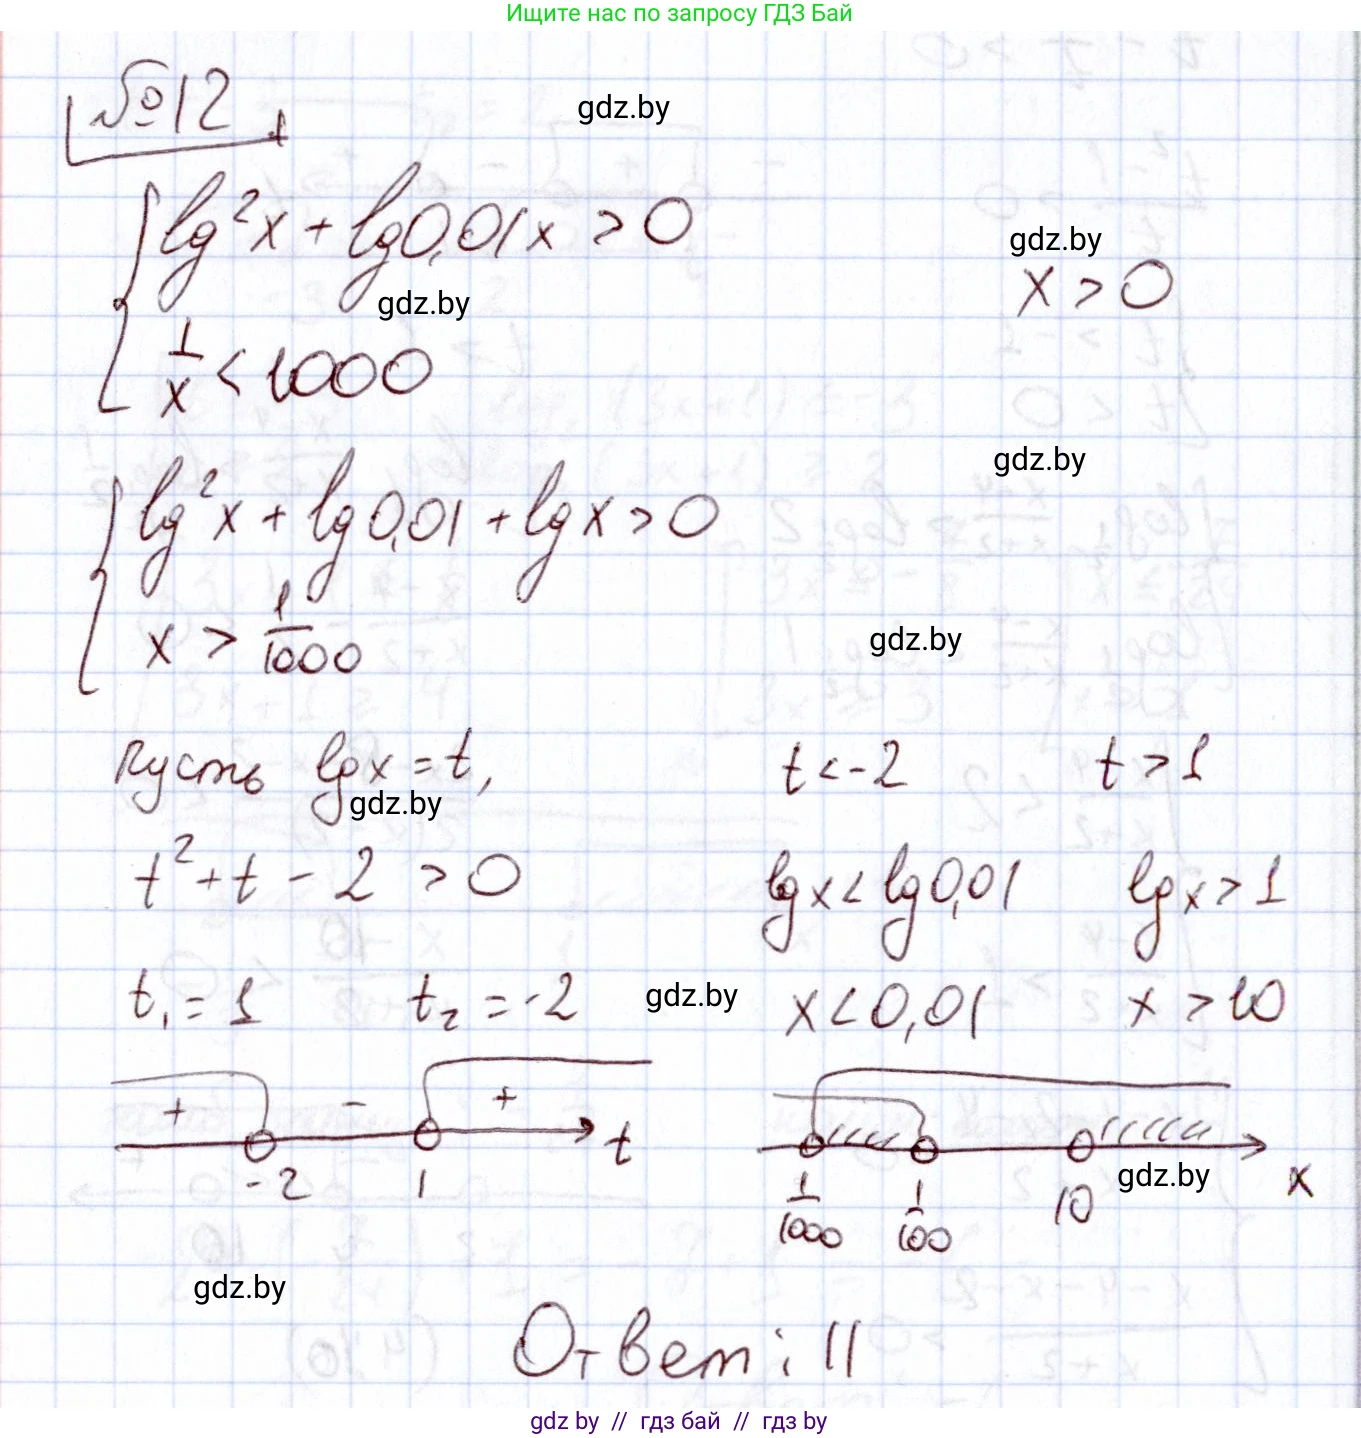 Ищите нас по запросу ГДЗ Бай
№12
gdz.by
lg²x + lg0,01x > 0
gdz.by
x > 0
gdz.by
1/x < 1000
gdz.by
lg²x + lg0,01 + lgx > 0
x > 1/1000
gdz.by
Пусть lgx = t,
gdz.by
t² + t - 2 > 0
t₁ = 1 t₂ = -2
gdz.by
+ - +
-2 1 t
t < -2 t > 1
lgx < lg0,01 lgx > 1
x < 0,01 x > 10
1/1000 1/100 10 x
gdz.by
gdz.by
Ответ: 11
gdz.by // гдз бай // гдз by